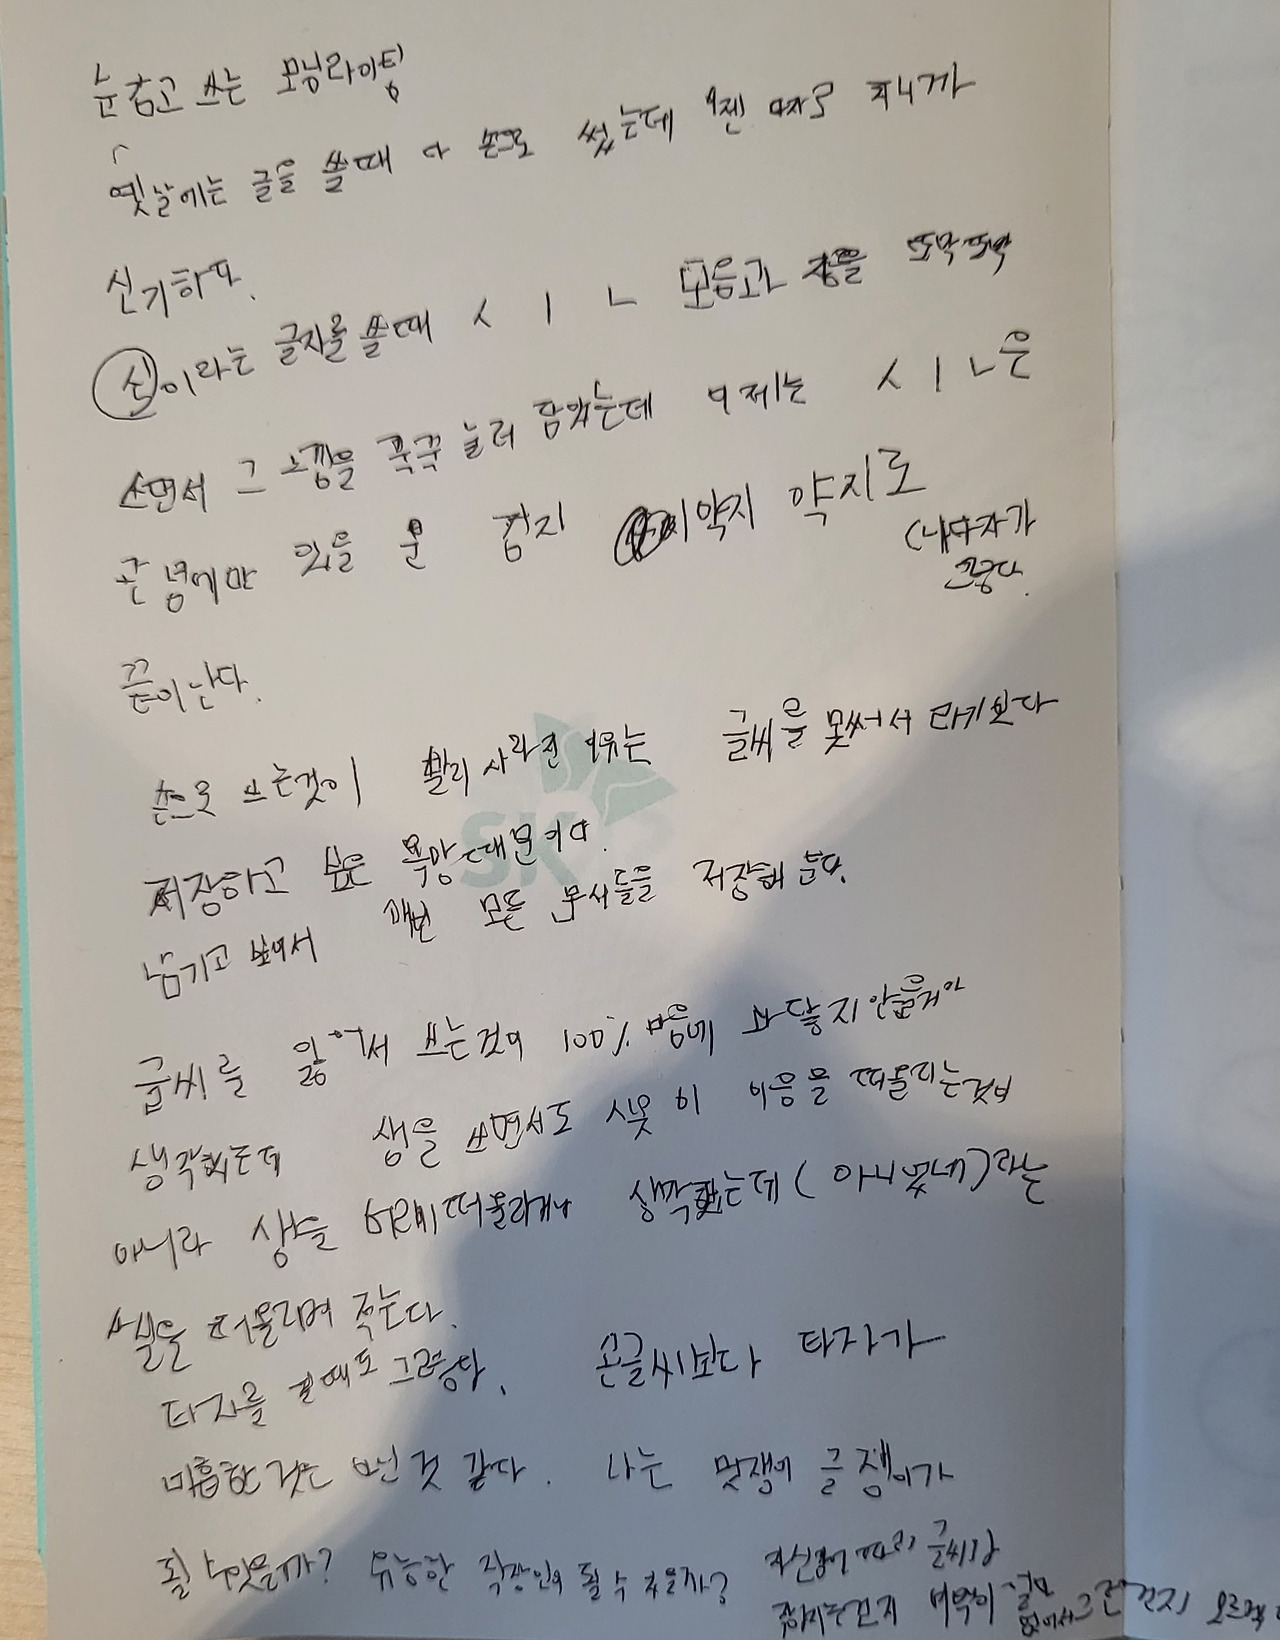 눈감고 쓰는 모닝라이팅
옛날에는 글을 쓸때 다 손으로 썼는데 이젠 타자로 치니까
신기하다.
신이라는 글자를 쓸때 ㅅ ㅣ ㄴ 모음과 을 또박또박
쓰면서 그 느낌을 꾹꾹 눌러 담았는데 이제는 ㅅ ㅣ ㄴ은
검지 약지 약지로
(내타자가
그렇다.
끝이난다.
손으로 쓰는것이 빨리 사라진 이유는 글씨를 못써서 라기보다
SK
저장하고 싶은 욕망때문이다.
남기고 싶어서 매번 모든 문서들을 저장해 둔다.
글씨를 잃어서 쓰는것이 100% 마음에 와 닿지 않을거야
생각했는데 생을 쓰면서도 시옷 이 이응을 떠올리는것이
아니라 생을 떠올라거나 생각했는데( 아니 못네)라는
을 떠올리며 적는다.
타자를 칠때도 그렇다. 손글씨보다 타자가
미흡한 것은 인것 같다. 나는 말쟁이 글쟁이가
될 수있을까? 유능한 직장인이 될 수 있을까? 자신감에 따라 글씨가
없어서